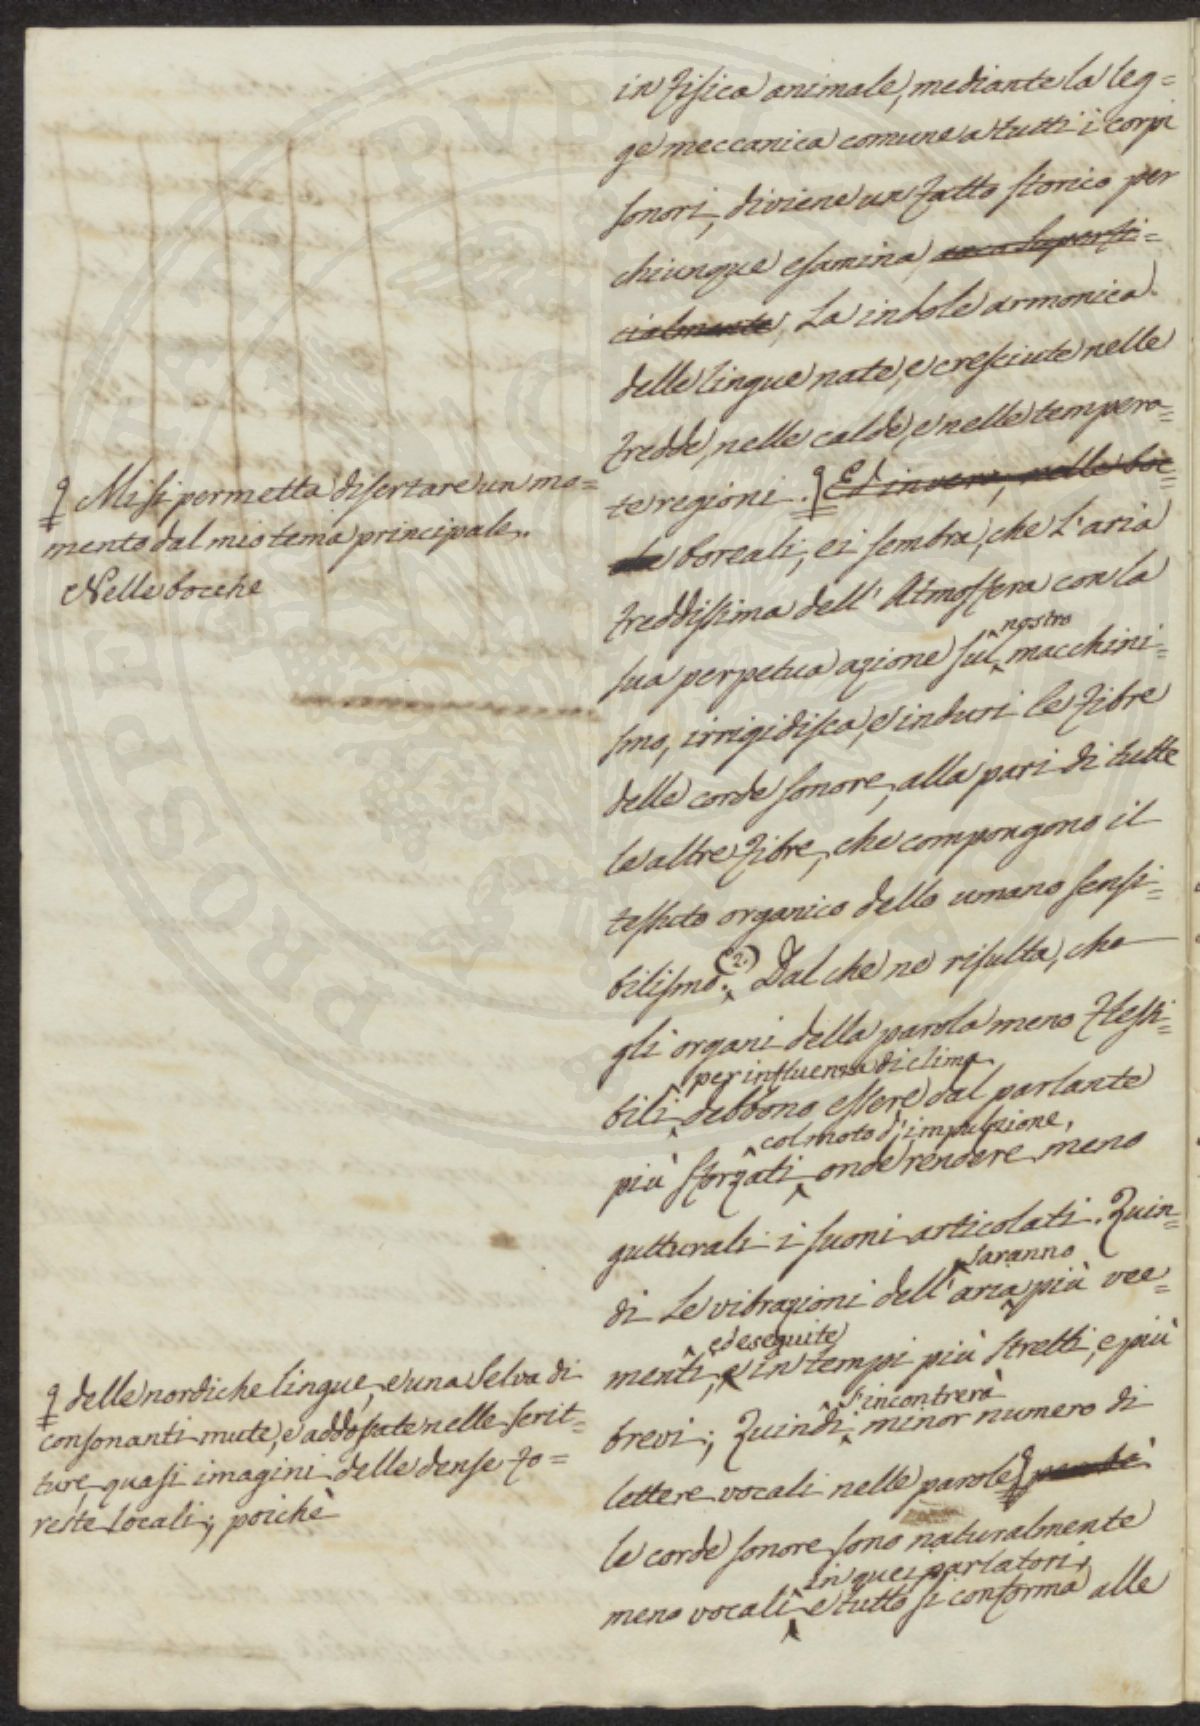 in Fisica animale, mediante la leg=
ge meccanica comune a tutti i corpi
sonori, diviene un fatto storico per
chiunque esamina, superfi=
cialmente, La indole armonica
delle lingue nate, e cresciute nelle
fredde, nelle calde, e nelle tempera=
te regioni. Ed invero, nelle boc=
che boreali, ei sembra, che l'aria
freddissima dell'Atmosfera con la
nostro
sua perpetua azione sul macchini=
smo, irrigidisca, e induri le fibre
delle corde sonore, alla pari di tutte
le altre fibre, che compongono il
tessuto organico dello umano sensi=
bilismo. (2.) Dal che ne risulta, che
gli organi della parola meno flessi=
per influenza di clima
bili debbono essere dal parlante
col moto d'impulsione,
più sforzati onde rendere meno
gutturali i suoni articolati. Quin=
saranno
di le vibrazioni dell'aria più vee=
ed eseguite
menti, e in tempi più stretti, e più
s'incontrerà
brevi; Quindi minor numero di
lettere vocali nelle parole perchè
le corde sonore sono naturalmente
in quei parlatori,
meno vocali e tutto si conforma alle
Mi si permetta disertare un mo=
mento dal mio tema principale.
Nelle bocche
delle nordiche lingue, e una Selva di
consonanti mute, e addossate nelle scrit=
ture quasi imagini delle dense fo=
reste locali; poichè
PROSPERITATI PVBLICAE AVGENDAE